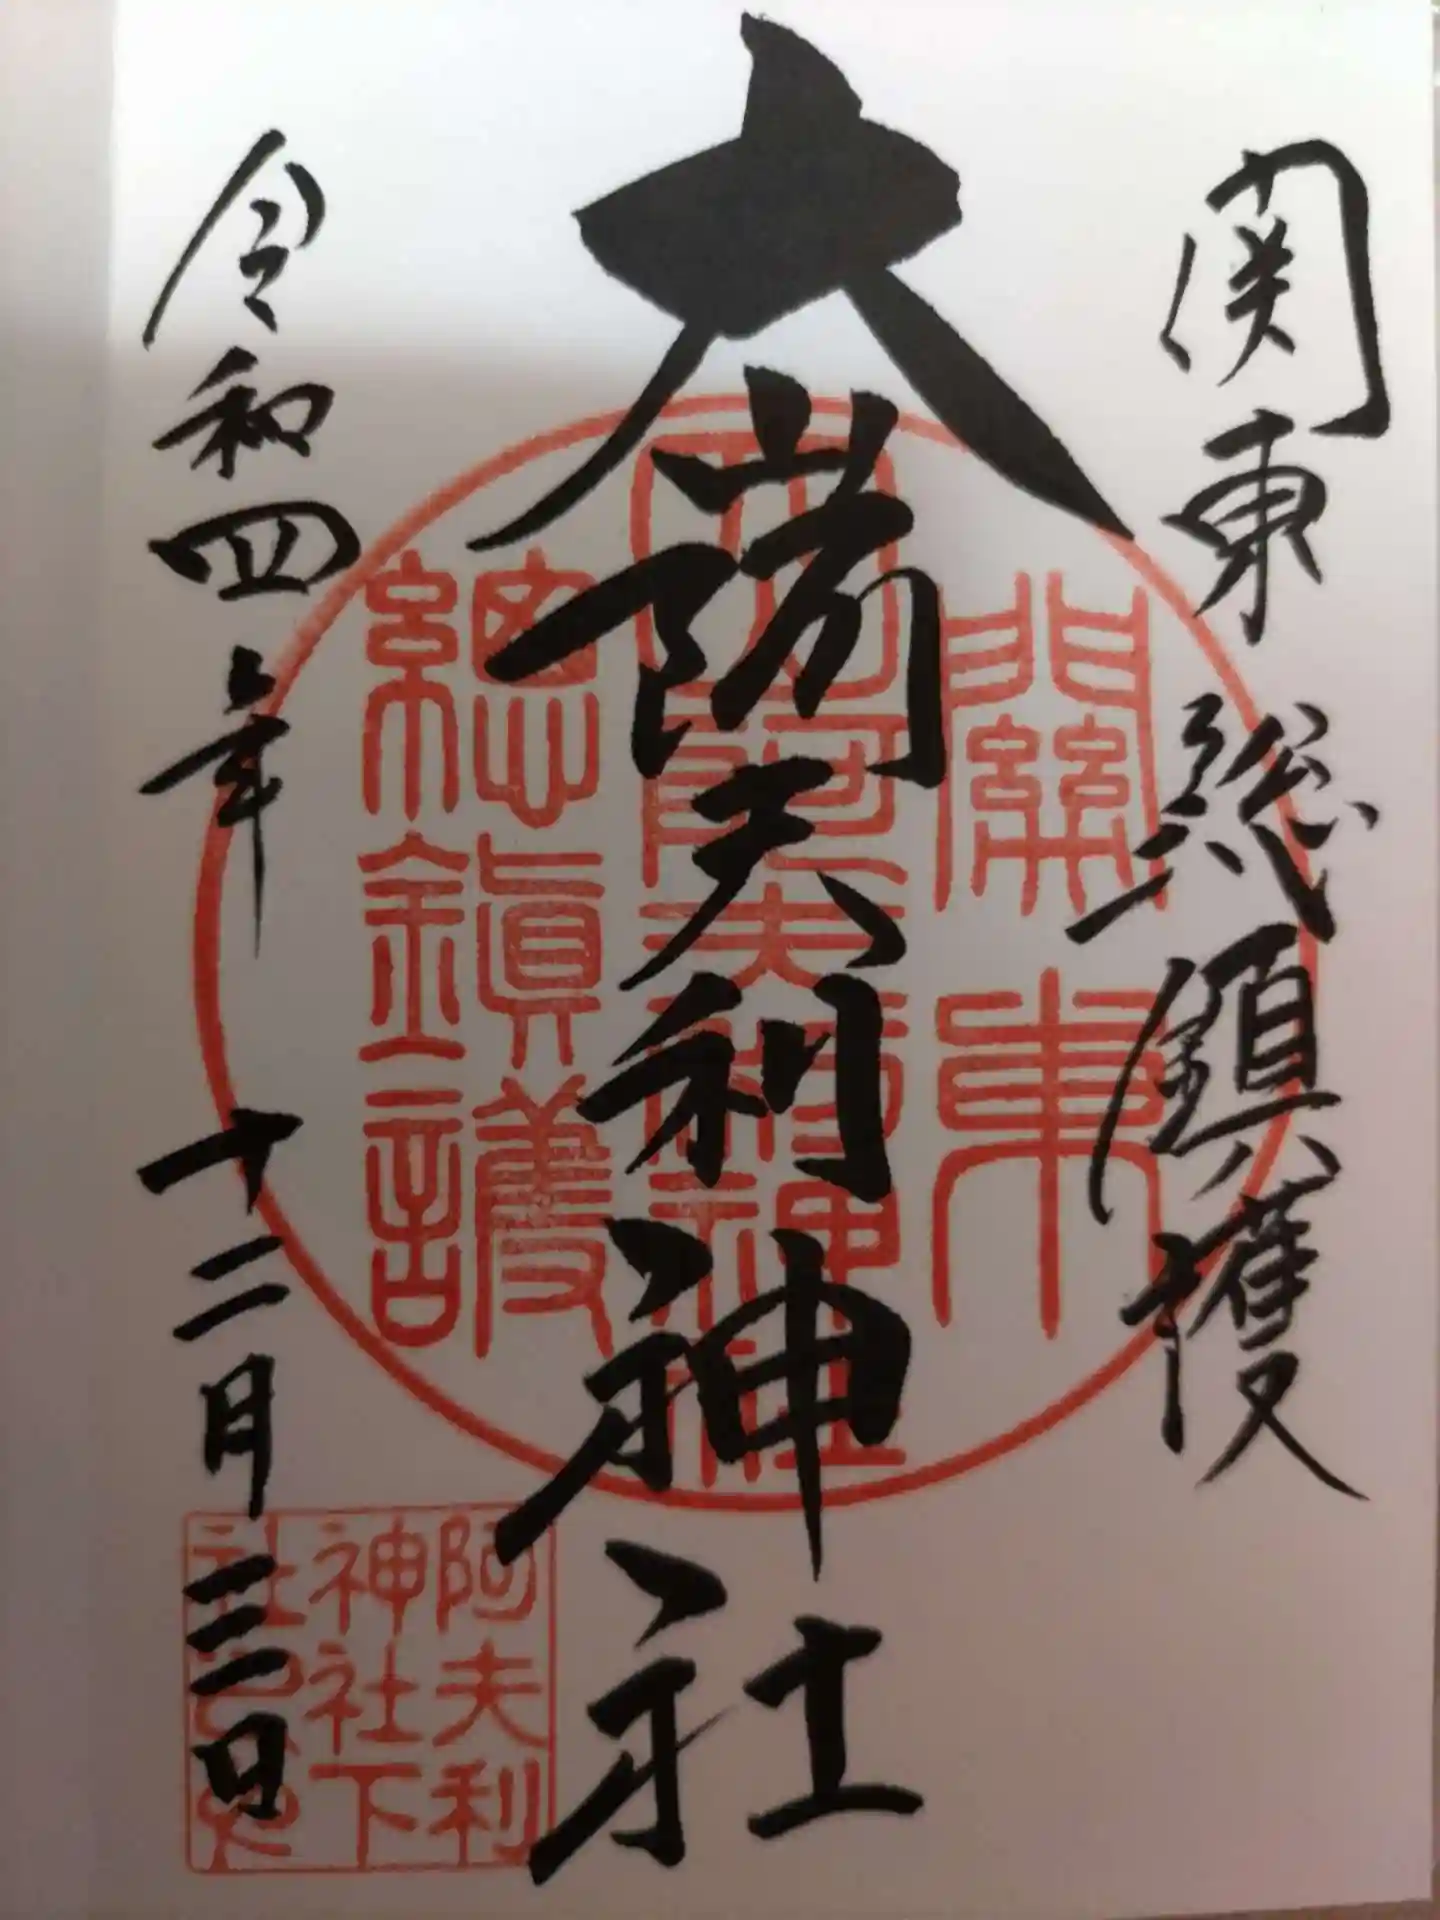 関東総鎮護
大山阿夫利神社
令和四年十二月三一日
關東
大山阿夫利神社
總鎭護
阿夫利
神社下
社之印